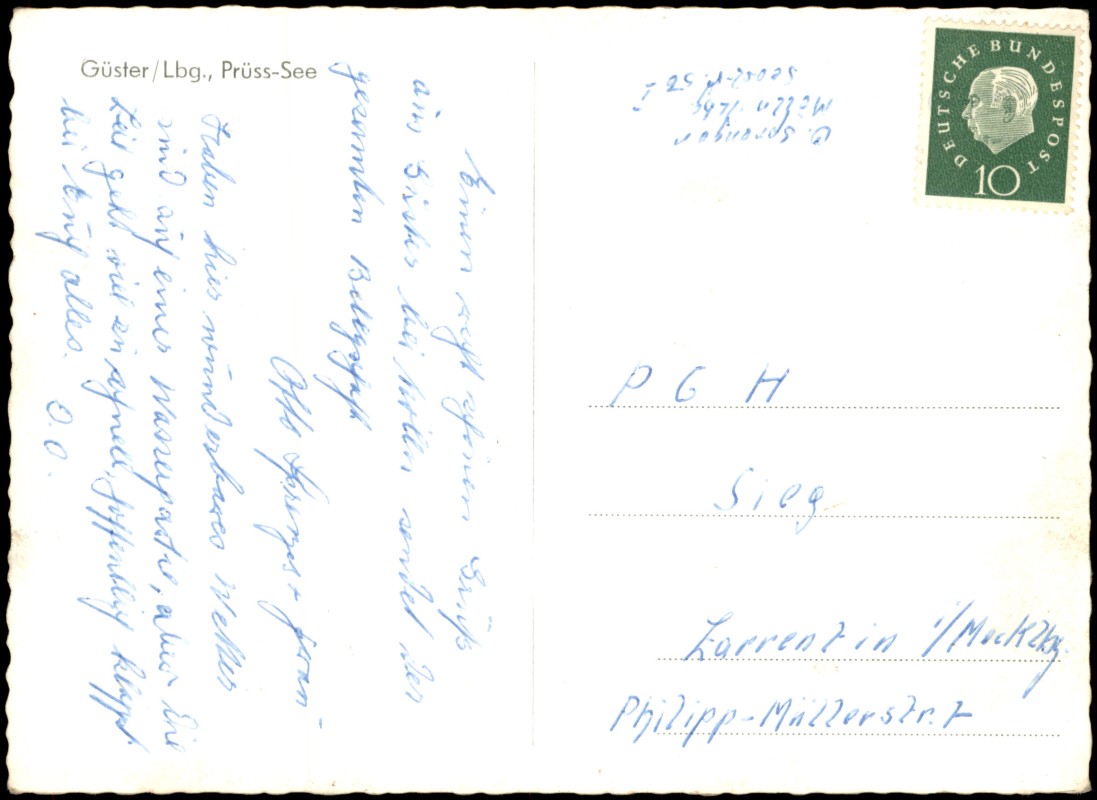 Güster/Lbg., Prüss-See
Einen recht schönen Gruß
aus Güster bei Mölln sendet der
gesamten Belegschaft
Otto Sprenger + Frau -
Haben hier wunderbares Wetter
sind auf einer Wasserpartie, aber die
Zeit geht viel zu schnell, hoffentlich klappt
bei Euch alles. O. O.
Mölln /Lbg
DEUTSCHE BUNDESPOST
10
P G H
Sieg
Zarrentin i/Meckzbg.
Philipp-Müllerstr. 7